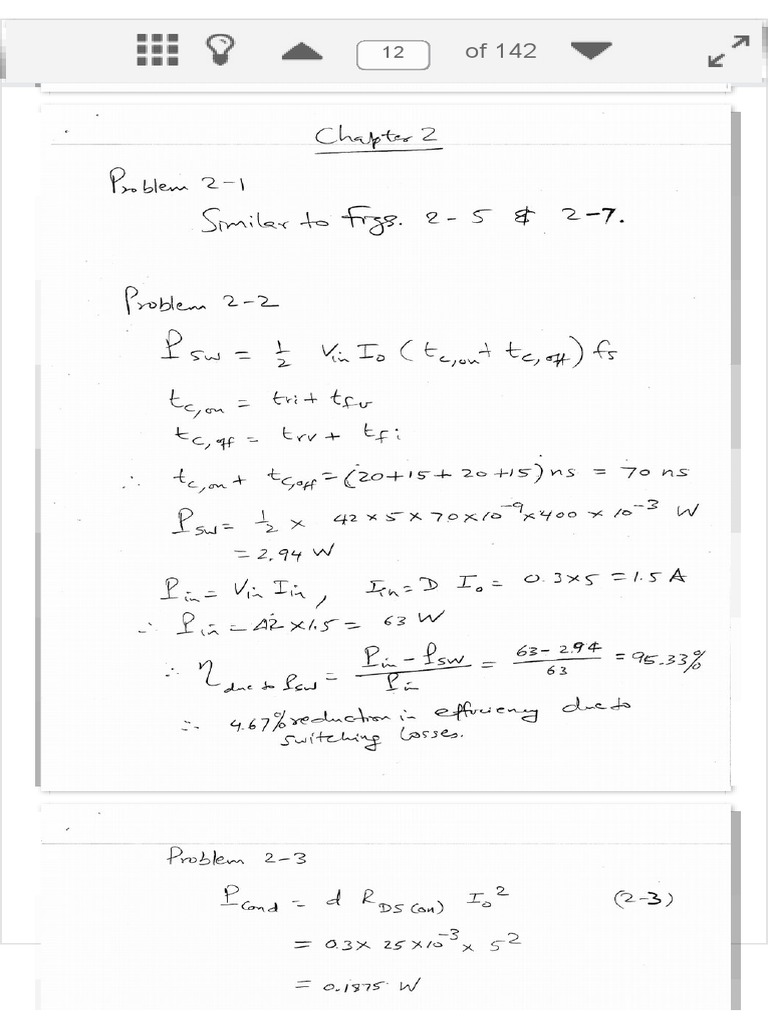 12 of 142
Chapter 2
Problem 2-1
Similar to Figs. 2-5 & 2-7.
Problem 2-2
P_sw = 1/2 V_in I_o (t_c,on + t_c,off) fs
t_c,on = tri + t_fv
t_c,off = trv + t_fi
∴ t_c,on + t_c,off = (20+15+20+15) ns = 70 ns
P_sw = 1/2 × 42 × 5 × 70 × 10^-9 × 400 × 10^-3 W
= 2.94 W
P_in = V_in I_in , I_in = D I_o = 0.3 × 5 = 1.5 A
∴ P_in = 42 × 1.5 = 63 W
∴ η_due to P_sw = (P_in - P_sw)/P_in = (63 - 2.94)/63 = 95.33%
∴ 4.67% reduction in efficiency due to
switching losses.
Problem 2-3
P_cond = d R_DS(on) I_o^2 (2-3)
= 0.3 × 25 × 10^-3 × 5^2
= 0.1875 W